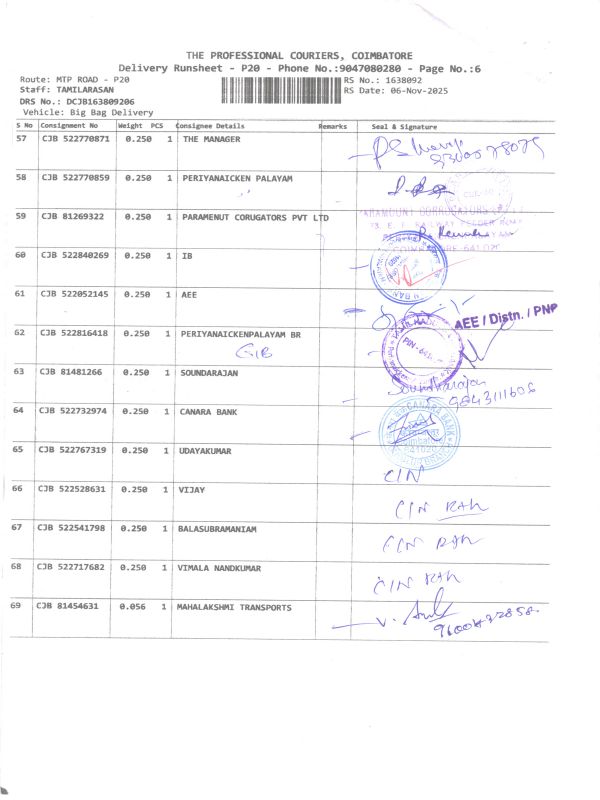 THE PROFESSIONAL COURIERS, COIMBATORE
Delivery Runsheet - P20 - Phone No.:9047080280 - Page No.:6
Route: MTP ROAD - P20 RS No.: 1638092
Staff: TAMILARASAN RS Date: 06-Nov-2025
DRS No.: DCJB163809206
Vehicle: Big Bag Delivery
S No Consignment No Weight PCS Consignee Details Remarks Seal & Signature
57 CJB 522770871 0.250 1 THE MANAGER
58 CJB 522770859 0.250 1 PERIYANAICKEN PALAYAM
59 CJB 81269322 0.250 1 PARAMENUT CORUGATORS PVT LTD
60 CJB 522840269 0.250 1 IB
61 CJB 522052145 0.250 1 AEE
AEE / Distn. / PNP
62 CJB 522816418 0.250 1 PERIYANAICKENPALAYAM BR
63 CJB 81481266 0.250 1 SOUNDARAJAN Soundharajan
9843111606
64 CJB 522732974 0.250 1 CANARA BANK CANARA BANK
65 CJB 522767319 0.250 1 UDAYAKUMAR CIN
66 CJB 522528631 0.250 1 VIJAY CIN
67 CJB 522541798 0.250 1 BALASUBRAMANIAM CIN
68 CJB 522717682 0.250 1 VIMALA NANDKUMAR CIN
69 CJB 81454631 0.056 1 MAHALAKSHMI TRANSPORTS